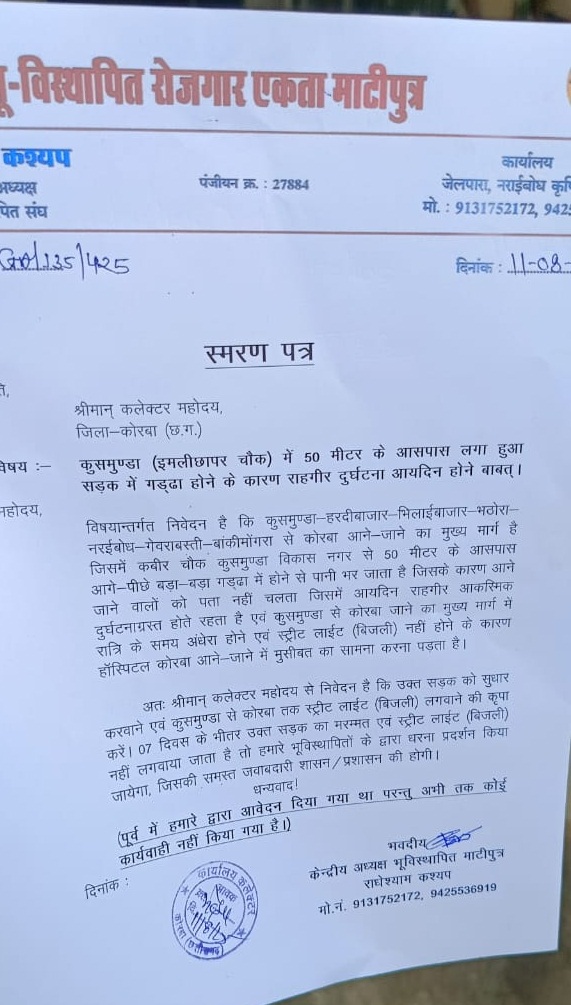 -विस्थापित रोजगार एकता माटीपुत्र
कश्यप
पंजीयन क्र. : 27884
कार्यालय
जेलपारा, नराईबोध
मो. : 9131752172,
135/425
दिनांक : 11-08-
स्मरण पत्र
श्रीमान् कलेक्टर महोदय,
जिला–कोरबा (छ.ग.)
विषय :– कुसमुण्डा (इमलीछापर चौक) में 50 मीटर के आसपास लगा हुआ
सड़क में गड्ढा होने के कारण राहगीर दुर्घटना आयदिन होने बाबत्।
महोदय,
विषयान्तर्गत निवेदन है कि कुसमुण्डा–हरदीबाजार–भिलाईबाजार–भठोरा–
नरईबोध–गेवराबस्ती–बांकीमोंगरा से कोरबा आने–जाने का मुख्य मार्ग है
जिसमें कबीर चौक कुसमुण्डा विकास नगर से 50 मीटर के आसपास
आगे–पीछे बड़ा–बड़ा गड्ढा में होने से पानी भर जाता है जिसके कारण आने
जाने वालों को पता नहीं चलता जिसमें आयदिन राहगीर आकस्मिक
दुर्घटनाग्रस्त होते रहता है एवं कुसमुण्डा से कोरबा जाने का मुख्य मार्ग में
रात्रि के समय अंधेरा होने एवं स्ट्रीट लाईट (बिजली) नहीं होने के कारण
हॉस्पिटल कोरबा आने–जाने में मुसीबत का सामना करना पड़ता है।
अतः श्रीमान् कलेक्टर महोदय से निवेदन है कि उक्त सड़क को सुधार
करवाने एवं कुसमुण्डा से कोरबा तक स्ट्रीट लाईट (बिजली) लगवाने की कृपा
करें। 07 दिवस के भीतर उक्त सड़क का मरम्मत एवं स्ट्रीट लाईट (बिजली)
नहीं लगवाया जाता है तो हमारे भूविस्थापितों के द्वारा धरना प्रदर्शन किया
जायेगा, जिसकी समस्त जवाबदारी शासन/प्रशासन की होगी।
धन्यवाद!
(पूर्व में हमारे द्वारा आवेदन दिया गया था परन्तु अभी तक कोई
कार्यवाही नहीं किया गया है।)
दिनांक :
भवदीय
केन्द्रीय अध्यक्ष भूविस्थापित माटीपुत्र
राधेश्याम कश्यप
मो.नं. 9131752172, 9425536919
कार्यालय कलेक्टर
कोरबा (छत्तीसगढ़)